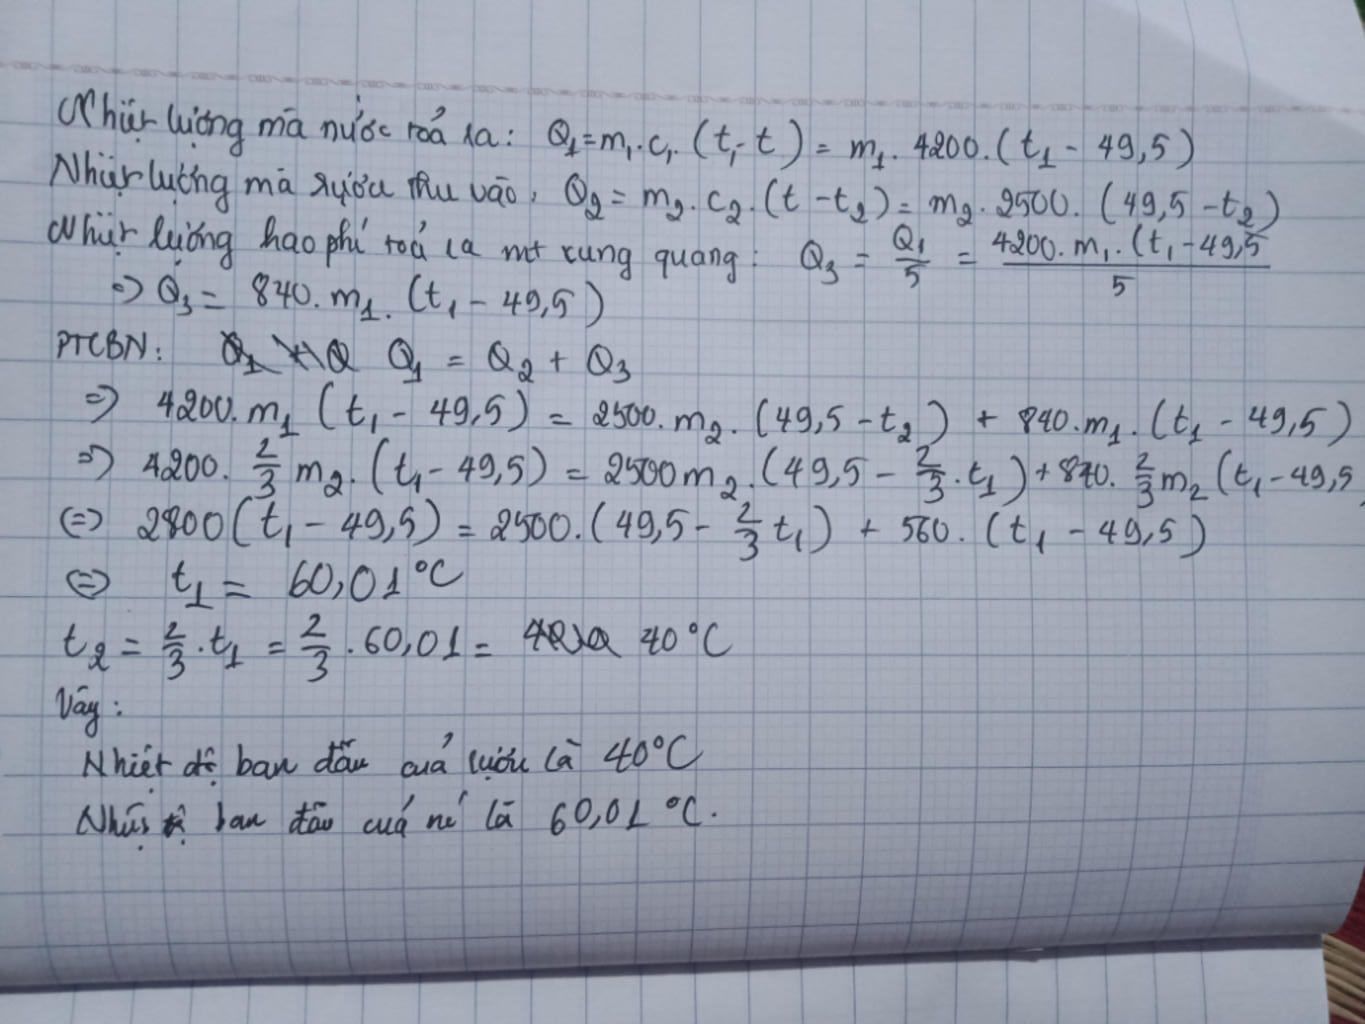 Nhiệt lượng mà nước toả ra: Q₁=m₁.c₁.(t₁-t) = m₁.4200.(t₁-49,5)
Nhiệt lượng mà rượu thu vào: Q₂ = m₂.c₂.(t-t₂) = m₂.2500.(49,5-t₂)
Nhiệt lượng hao phí toả ra mt xung quang: Q₃ = Q₁/5 = 4200.m₁.(t₁-49,5/5
=> Q₃ = 840.m₁.(t₁-49,5)
PTCBN: Q₁ = Q₂ + Q₃
=> 4200.m₁(t₁-49,5) = 2500.m₂.(49,5-t₂) + 840.m₁.(t₁-49,5)
=> 4200.2/3m₂.(t₁-49,5) = 2500m₂.(49,5-2/3.t₁)+840.2/3m₂(t₁-49,5
<=> 2800(t₁-49,5) = 2500.(49,5-2/3t₁) + 560.(t₁-49,5)
<=> t₁ = 60,01°C
t₂ = 2/3.t₁ = 2/3.60,01 = 40°C
Vậy:
Nhiệt độ ban đầu của rượu là 40°C
Nhiệt độ ban đầu của nc là 60,01°C.